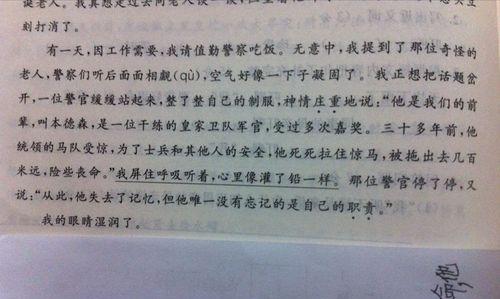 刻打消了。
有一天，因工作需要，我请值勤警察吃饭。无意中，我提到了那位奇怪的
老人，警察们听后面面相觑(qù)，空气好像一下子凝固了。我正想把话题岔
开，一位警官缓缓站起来，整了整自己的制服，神情庄重地说：“他是我们的前
辈，叫本德森，是一位干练的皇家卫队军官，受过多次嘉奖。三十多年前，他
统领的马队受惊，为了士兵和其他人的安全，他死死拉住惊马，被拖出去几百
米远，险些丧命。”我屏住呼吸听着，心里像灌了铅一样。那位警官停了停，又
说：“从此，他失去了记忆，但他唯一没有忘记的是自己的职责。”
我的眼睛湿润了。